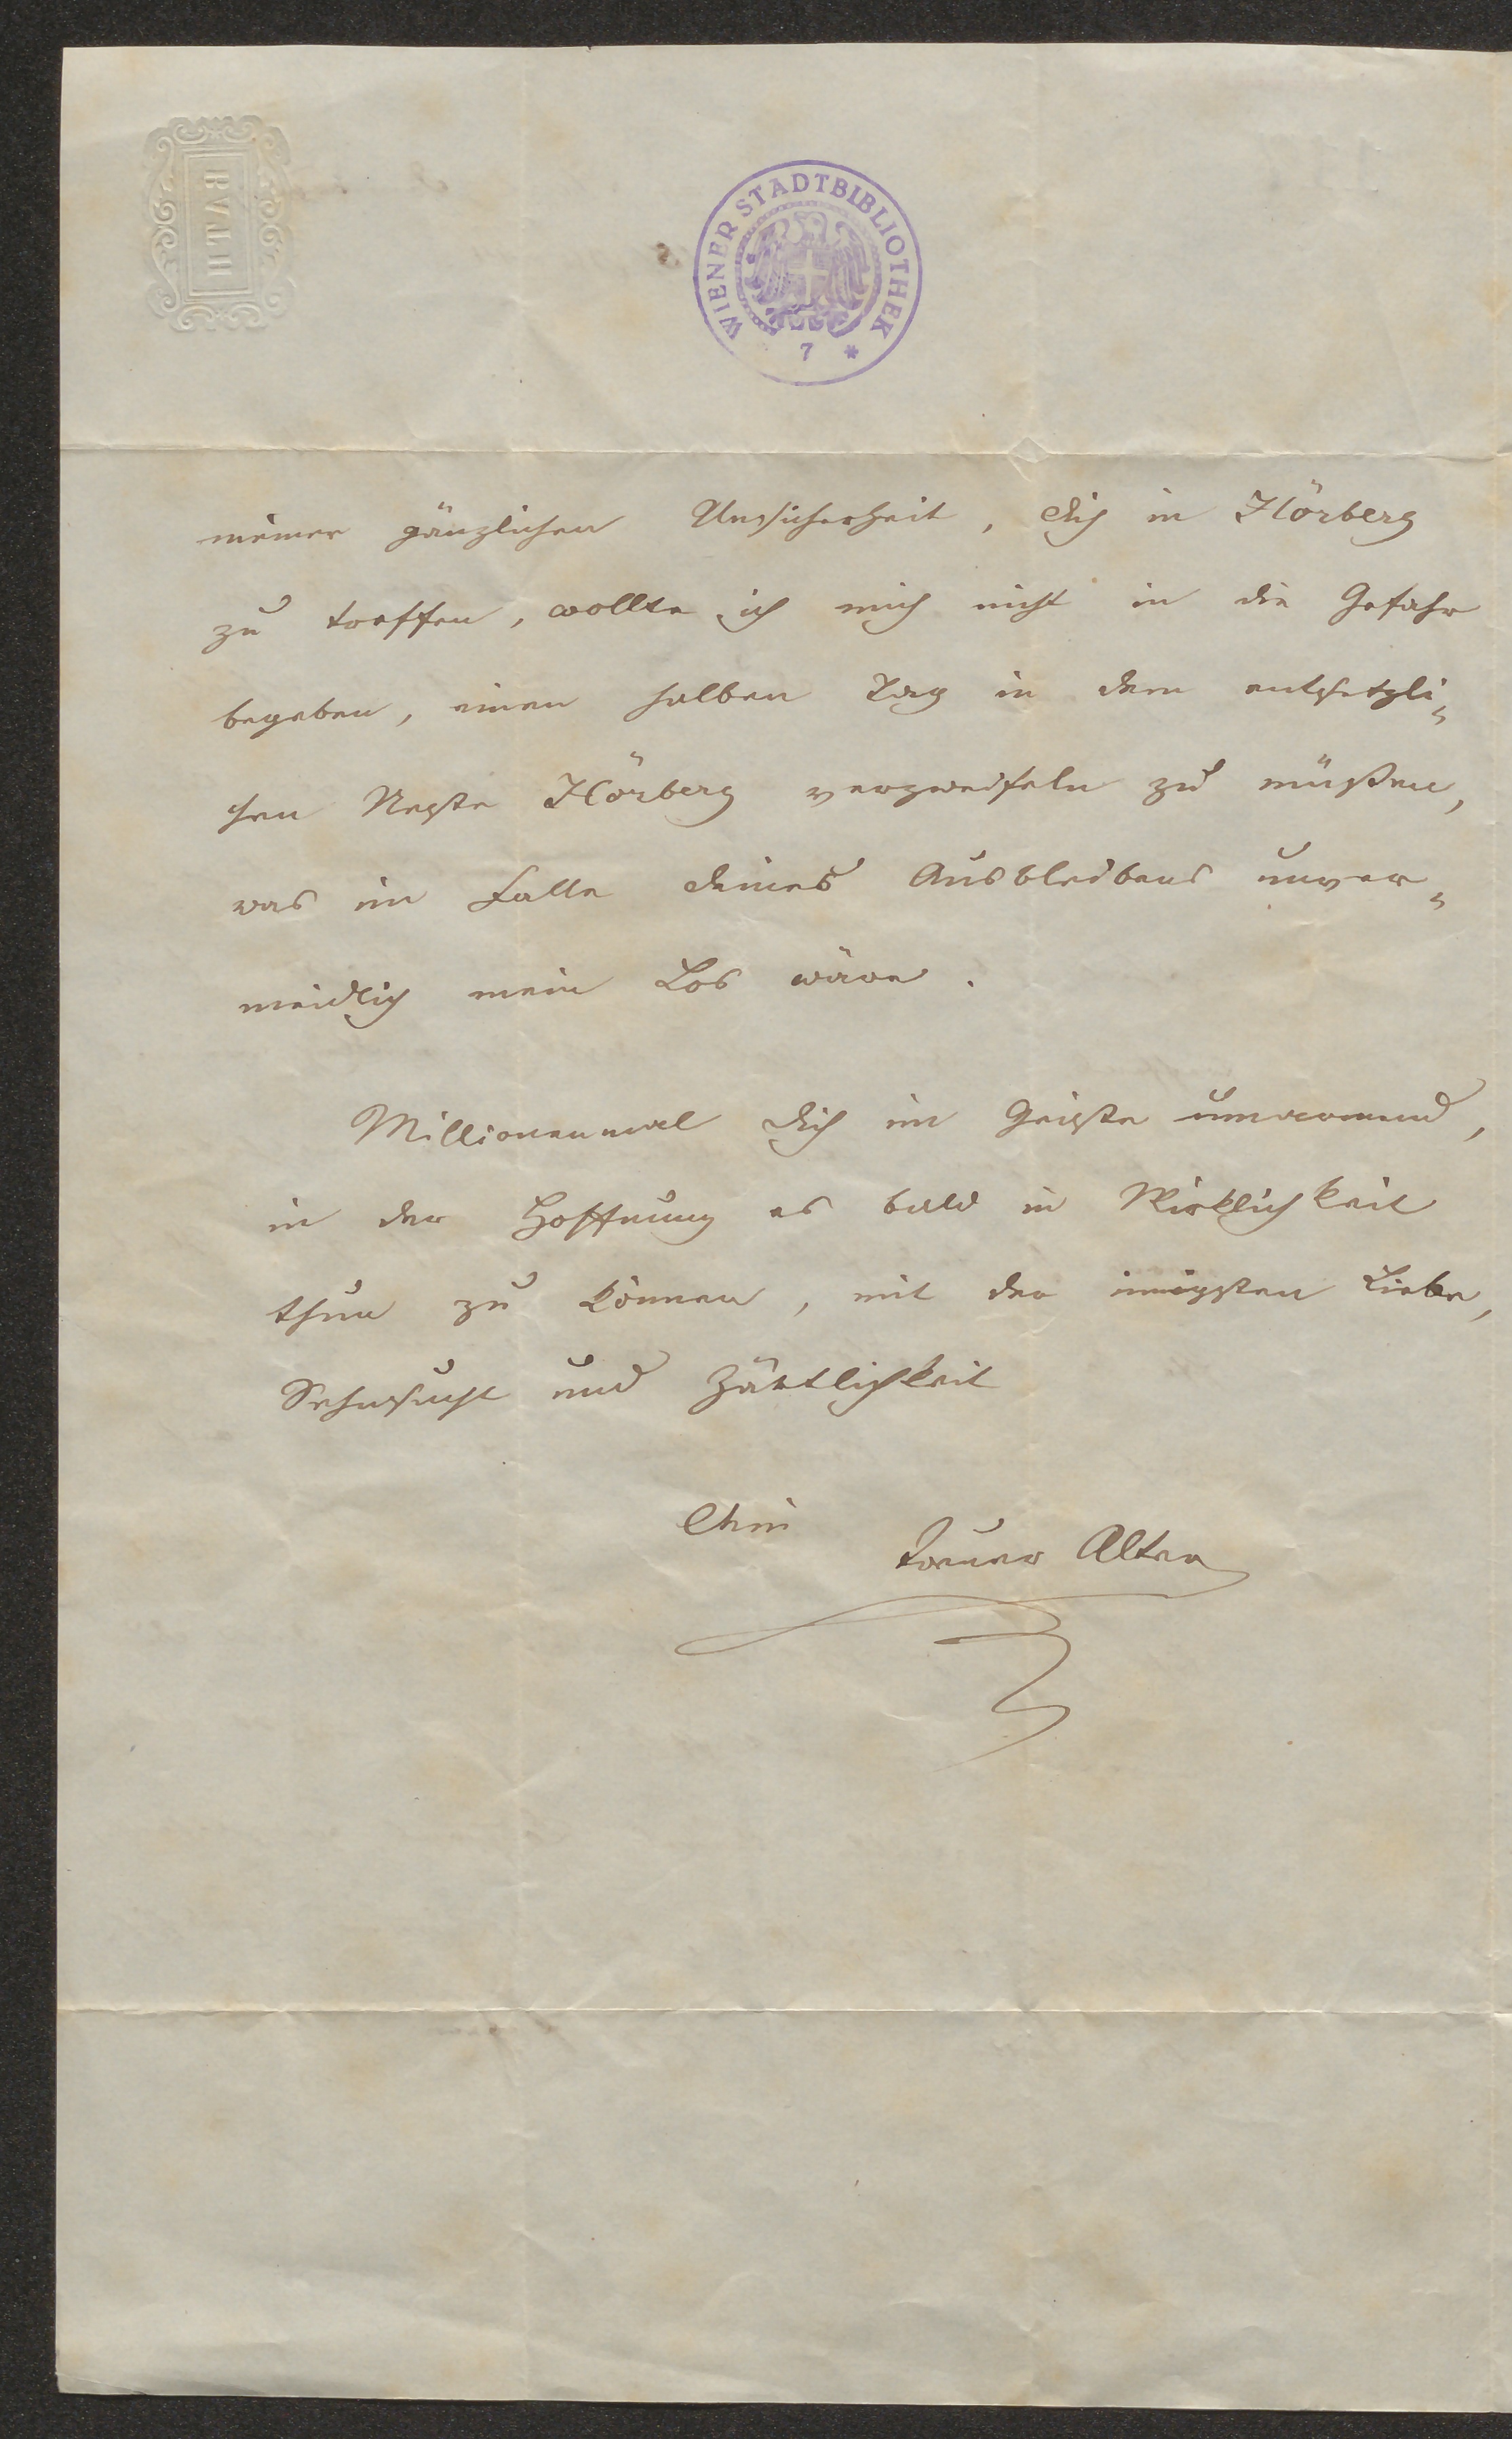 BATH
WIENER STADTBIBLIOTHEK
7 *
meiner gänzlichen Unsicherheit, dich in Hörberg
zu treffen, wollte ich mich nicht in die Gefahr
begeben, einen halben Tag in dem entsetzli⸗
chen Neste Hörberg verzweifeln zu müßen,
was im Falle deines Ausbleibens unver⸗
meidlich mein Los wäre.
Millionenmal dich im Geiste umarmend,
in der Hoffnung es bald in Wirklichkeit
thun zu können, mit der innigsten Liebe,
Sehnsucht und Zärtlichkeit
Dein
treuer Alter